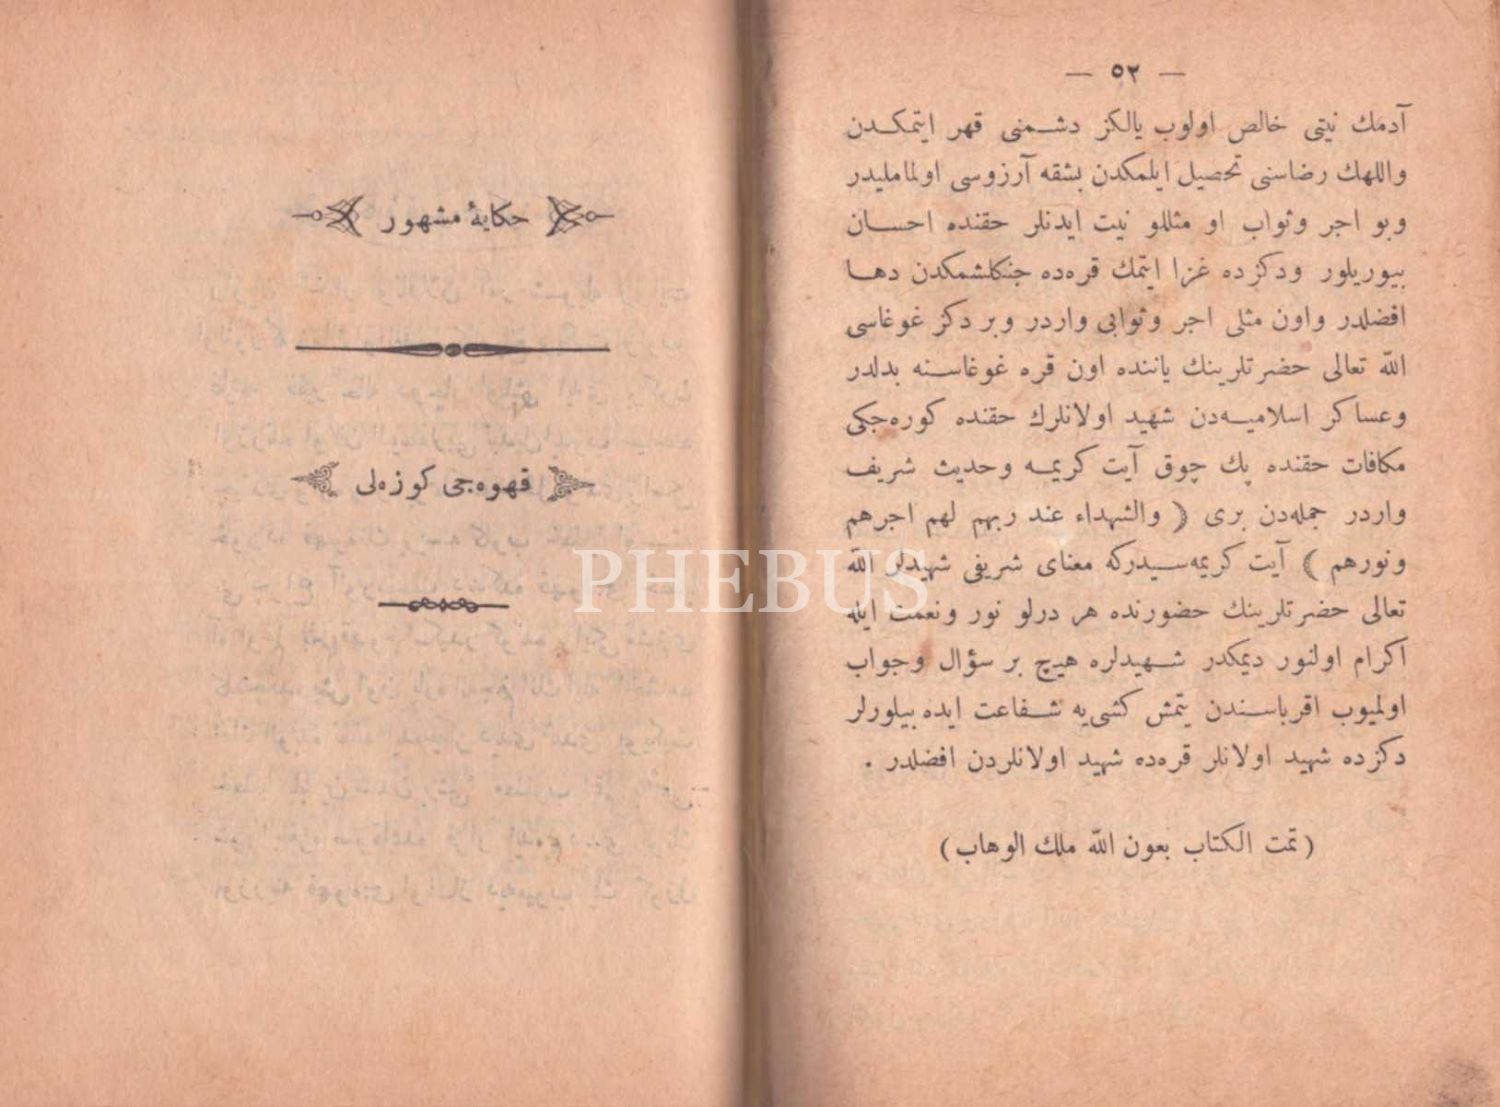 — ٥٢ —
آدمك نیتی خالص اولوب یالکز دشمنی قهر ایتمکدن
واللهك رضاسنی تحصیل ایلمکدن بشقه آرزوسی اولماملیدر
وبو اجر وثواب او مثللو نیت ایدنلر حقنده احسان
بیوریلور ودکزده غزا ایتمك قره‌ده جنکلشمکدن دها
افضلدر واون مثلی اجر وثوابی واردر وبر دکز غوغاسی
الله تعالی حضرتلرینك یاننده اون قره غوغاسنه بدلدر
وعساکر اسلامیه‌دن شهید اولانلرك حقنده کوره‌جکی
مکافات حقنده پك چوق آیت کریمه وحدیث شریف
واردر جمله‌دن بری ( والشهداء عند ربهم لهم اجرهم
ونورهم ) آیت کریمه‌سیدرکه معنای شریفی شهیدلر الله
تعالی حضرتلرینك حضورنده هر درلو نور ونعمت ایله
اکرام اولنور دیمکدر شهیدلره هیچ بر سؤال وجواب
اولمیوب اقرباسندن یتمش کشی‌یه شفاعت ایده بیلورلر
دکزده شهید اولانلر قره‌ده شهید اولانلردن افضلدر .
(تمت الکتاب بعون الله ملك الوهاب)
حکایهٔ مشهور
قهوه‌جی کوزه‌لی
PHEBUS